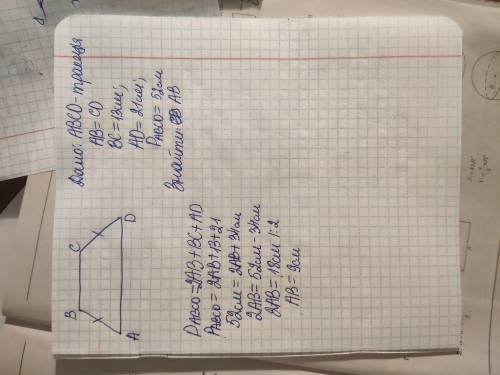 Дано: ABCD - трапеція
AB = CD
BC = 13см;
AD = 21см;
PABCD = 52см
Знайти: AB
B
C
A
D
PABCD = 2AB + BC + AD
PABCD = 2AB + 13 + 21
52см = 2AB + 34см
2AB = 52см - 34см
2AB = 18см |: 2
AB = 9см